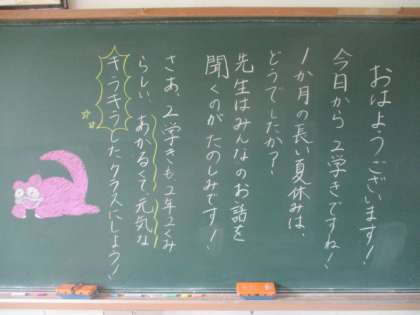 おはようございます！
今日から2学きですね！
1か月の長い夏休みは、
どうでしたか？
先生はみんなのお話を
聞くのがたのしみです！
さあ、2学きも2年2くみ
らしい、あかるくて元気な
キラキラしたクラスにしよう！